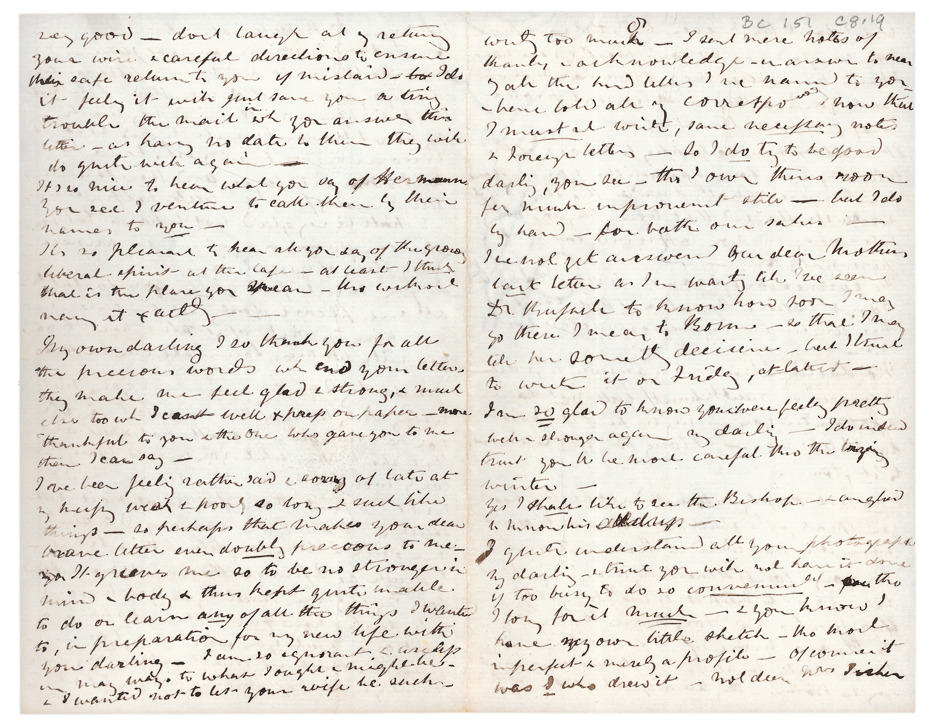 BC 151 C8.19
very good — dont laugh at my retung
your wire & careful directions to ensure
their safe return to you if mistaid – but I do
it feelg it will just save you a
trouble the mail in wh you answer this
letter – as havg no date to them they will
do quite well again —
Its so nice to hear what you say of Hermanns
You see I venture to call them by their
names to you —
Its so pleasant to hear all you say of the growg
liberal spirit at the Cape – at least I think
that is the place you mean – tho without
namg it exactly —
My own darling I so thank you for all
the precious words wh end your letters
they make me feel glad & strong, & much
else too wh I cant well express on paper – more
thankful to you & the One who gave you to me
than I can say —
I've been feelg rather sad & sorry of late at
my keepg weak & poorly so long & such like
things – so perhaps that makes your dear
brave letter even doubly precious to me –
It grieves me so to be no stronger in
mind & body & thus kept quite unable
to do or learn any of all the things I wanted
to, in preparation for my new life with
you darling – I am so ignorant & careless
in may ways to what I ought & might be –
& I wanted not to let your wife be such –
8
writg too much – I send mere notes of
thanks & acknowledge – in answer to near
ly all the kind letters I've named to you
– & have told all my correspo know that
I must not write, save necessary notes
& Foreign letters — So I do try to be good
darlg, you see – tho I own theres room
for much improvement still — but I do
try hard – for both our sakes —
I've not yet answered your dear Mothers
last letter as I'm waitg till I've seen
Dr to know how soon I may
go there I mean, to Bonn – so that I may
tell her somethg decisive – but I think
to write it on Friday, at latest —
I'm so glad to know you were feelg pretty
well & stronger again my darlg – I do indeed
trust you'll be more careful thro the tryig
winter —
Yes I shall like to see the Bishop – & am glad
to know his address —
I quite understand all your photograph
my darling – & trust you will not have it done
if too busy to do so conveniently – tho
I long for it much — & you know I
have my own little sketch – tho most
imperfect & merely a profile – of course it
was I who drew it – not dear Miss Fisher